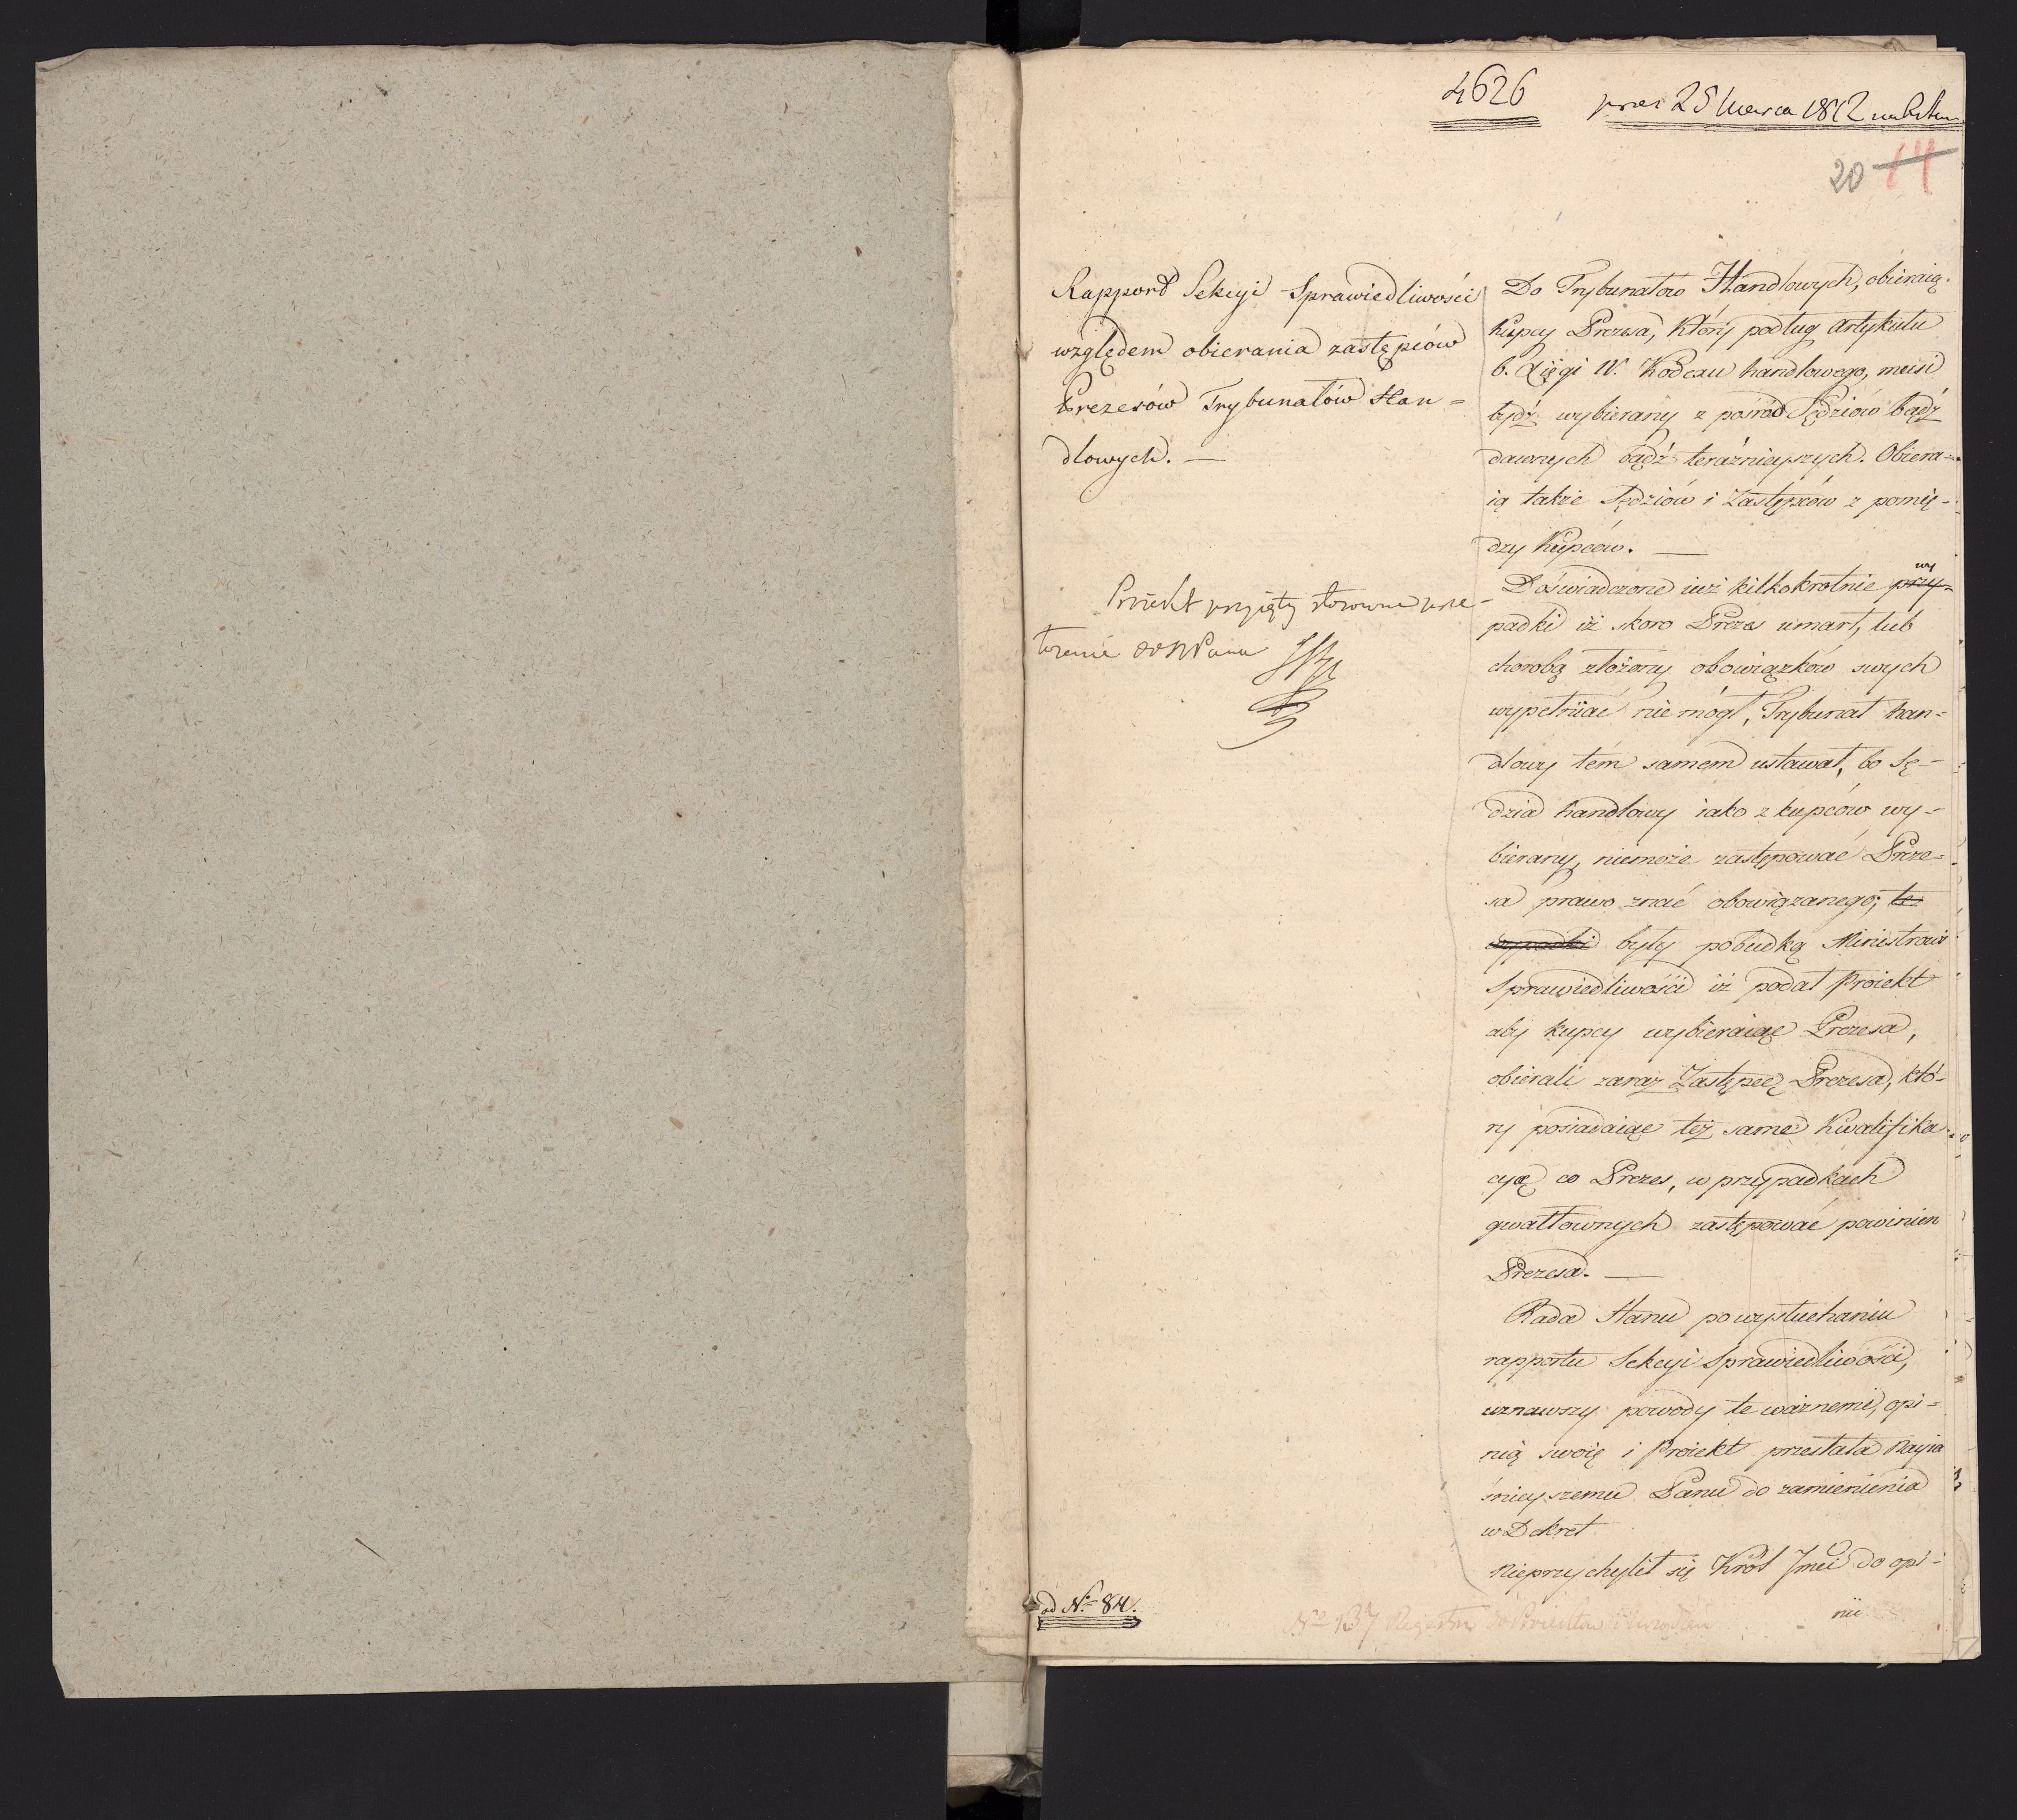 4626
25 Marca 1812
20 14
Rapport Sekcyi Sprawiedliwości
względem obierania zastępców
Prezesów Trybunałów Han=
dlowych. —
Proiekt przyięty stosowne prze-
łożenie do NPana
od No 84.
Do Trybunałow Handlowych, obieraią
kupcy Prezesa, który podług artykułu
6. Xięgi IV. Kodexu handlowego, musi
bydź wybierany z pośrod Sędziow bądź
dawnych bądź teraznieyszych. Obiera-
ią także Sędziów i Zastępców z pomię-
dzy Kupców. —
wy
Doświadczone iuż kilkokrotnie przy=
padki iż skoro Prezes umarł, lub
chorobą złożony obowiązków swych
wypełniać niemógł, Trybunał han=
dlowy tém samem ustawał, bo Sę-
dzia handlowy iako z kupców wy-
bierany, niemoże zastępować Preze=
sa prawo znać obowiązanego; te
wypadki były pobudką Ministrowi
Sprawiedliwości iż podał Proiekt
aby kupcy wybieraiąc Prezesa,
obierali zaraz Zastępcę Prezesa, któ-
ry posiadaiąc też same Kwalifika
cyą co Prezes, w przypadkach
gwałtownych zastępować powinien
Prezesa. —
Rada Stanu po wysłuchaniu
rapportu Sekcyi Sprawiedliwości,
uznawszy powody te ważnemi, opi=
nią swoię i Proiekt przesłała Nayia
śnieyszemu Panu do zamienienia
w Dekret
Nieprzychylił się Król Jmci do opi-
nii
No 137 Regestru